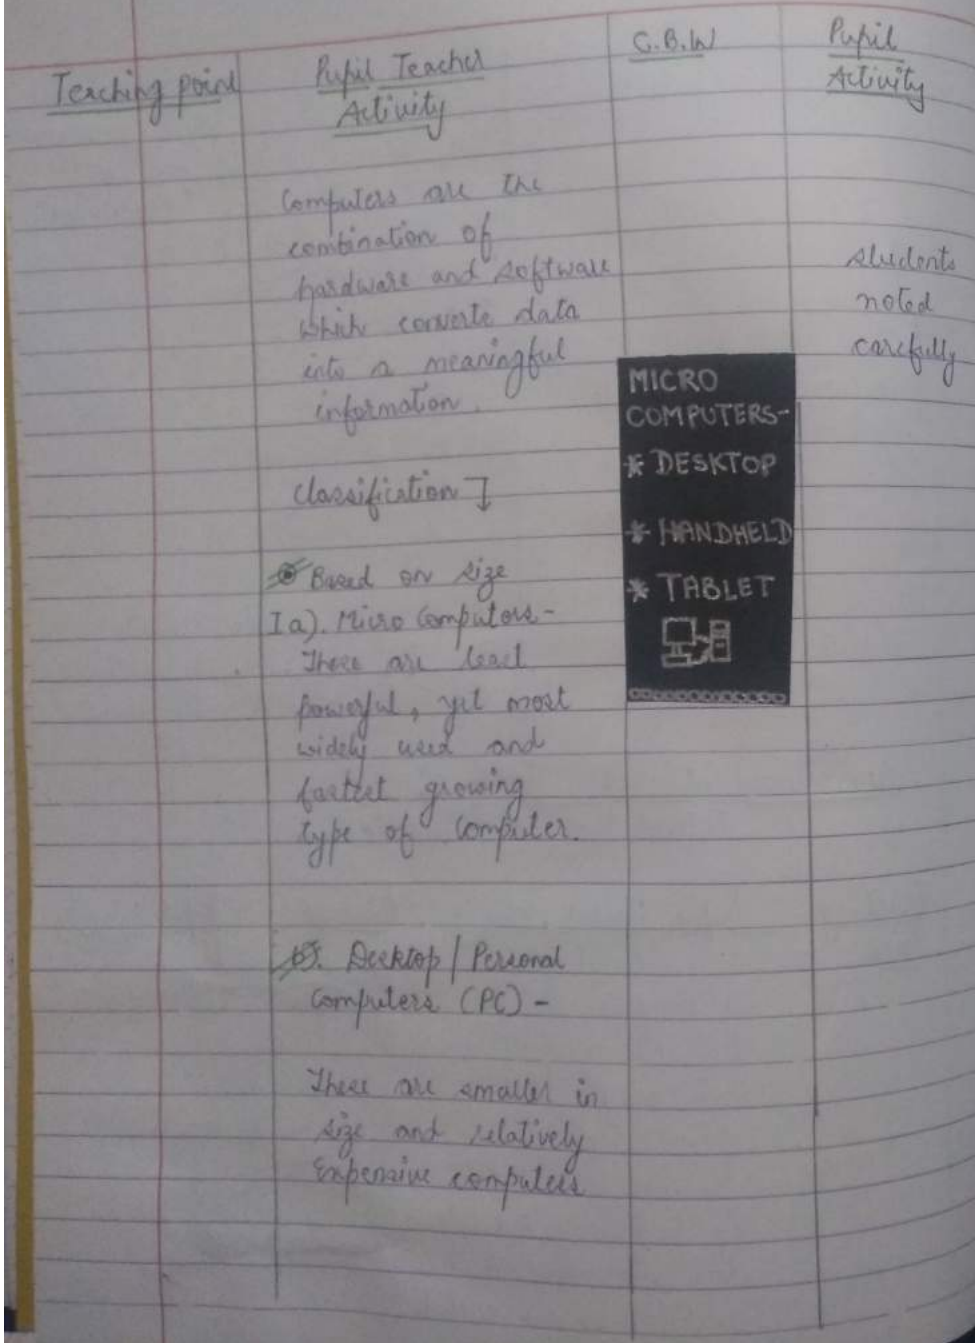 Teaching point
Pupil Teacher
Activity
C.B.W
Pupil
Activity
Computers are the
combination of
hardware and software
which converte data
into a meaningful
information.
classification
Based on size
I a). Micro Computers-
These are least
powerful, yet most
widely used and
fastest growing
type of computer.
b). Desktop/Personal
Computers (PC) -
These are smaller in
size and relatively
Expensive computers
MICRO
COMPUTERS-
* DESKTOP
* HANDHELD
* TABLET
students
noted
carefully